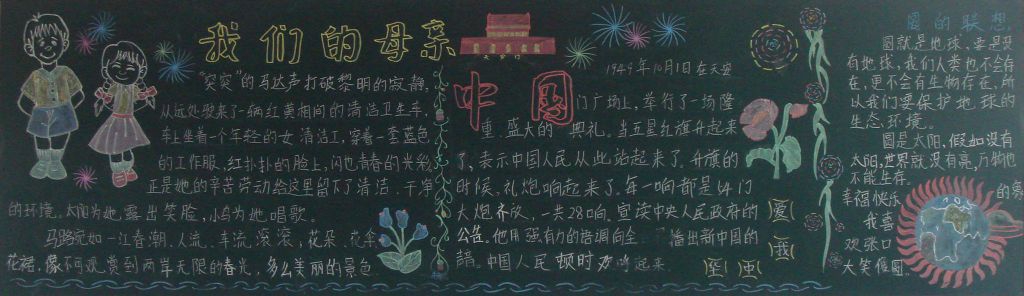 我们的母亲
天安门
中国
"突突"的马达声打破黎明的寂静,
从远处驶来了一辆红黄相间的清洁卫生车,
车上坐着一个年轻的女清洁工,穿着一套蓝色
的工作服,红扑扑的脸上,闪出青春的光彩,
正是她的辛苦劳动给这里留下了清洁、干净
的环境。太阳为她露出笑脸,小鸟为她唱歌。
马路宛如一江春潮,人流、车流滚滚;花朵、花伞、
花裙,像不可观赏到两岸无限的春光,多么美丽的景色
1949年10月1日在天安
门广场上,举行了一场隆
重、盛大的典礼。当五星红旗升起来
了,表示中国人民从此站起来了,升旗的
时候,礼炮响起来了,每一响都是54门
大炮齐放,一共28响。宣读中央人民政府的
公告。他用强有力的语调向全播出新中国的
中国人民顿时欢呼起来
爱
我
中
圆的联想
圆就是地球,要是没
有地球,我们人类也不会存
在,更不会有生物存在,所
以我们要保护地球的
生态环境。
圆是太阳,假如没有
太阳,世界就没有亮,万物也
不能生存。
幸福快乐的
我喜
双张口
大笑催圆